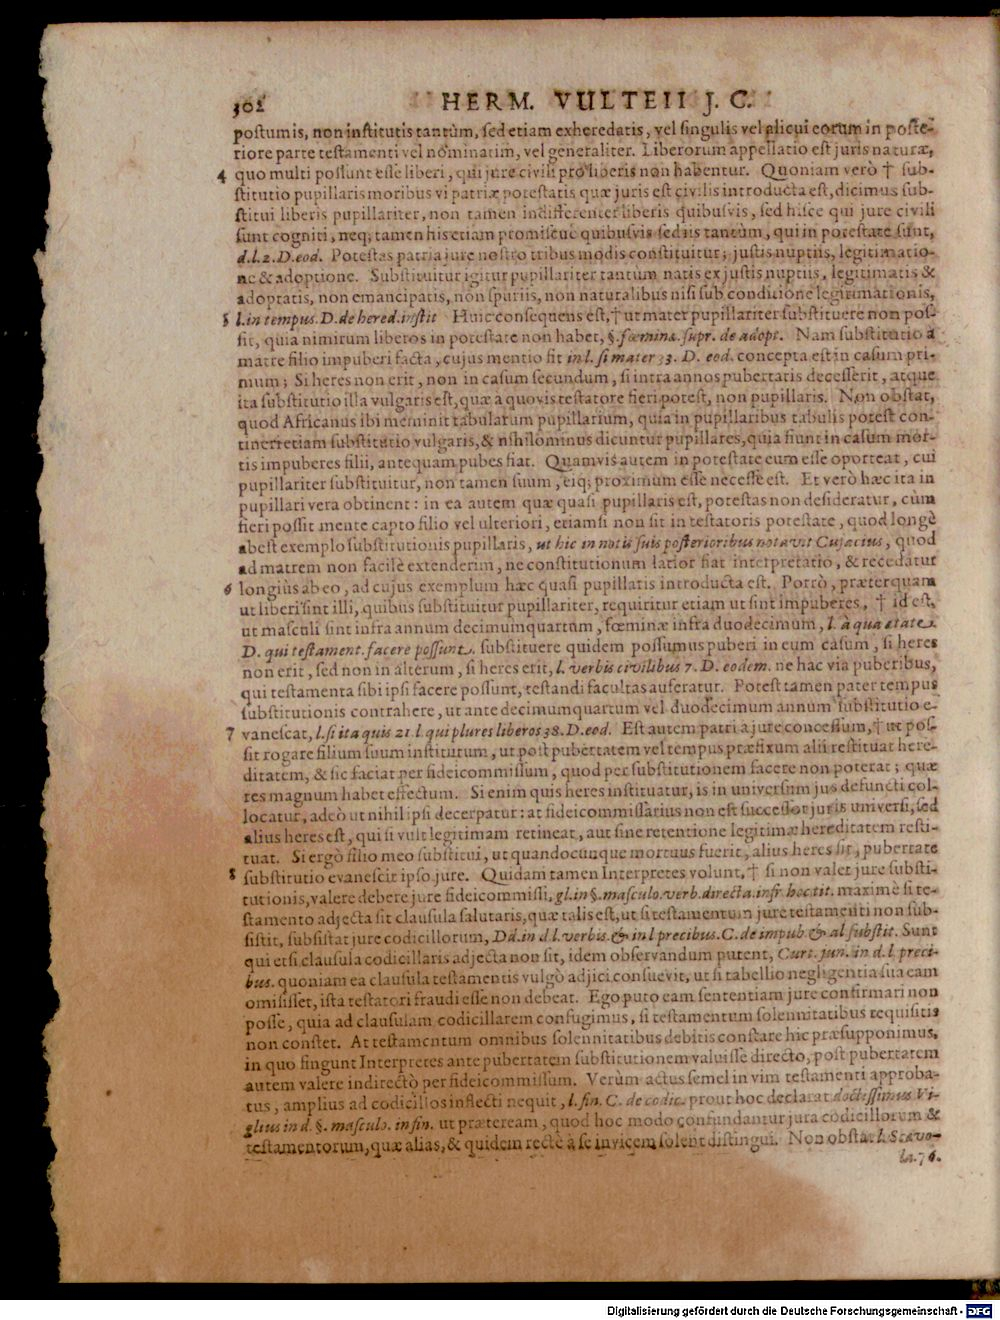 302 HERM. VULTEII J. C.
postumis, non institutis tantùm, sed etiam exheredatis, vel singulis vel alicui eorum in poste-
riore parte testamenti vel nominatim, vel generaliter. Liberorum appellatio est juris naturæ,
4 quo multi possunt esse liberi, qui jure civili pro liberis non habentur. Quoniam verò † sub-
stitutio pupillaris moribus vi patriæ potestatis quæ juris est civilis introducta est, dicimus sub-
stitui liberis pupillariter, non tamen indifferenter liberis quibusvis, sed hisce qui jure civili
sunt cogniti, neq; tamen his etiam promiscuè quibusvis sed iis tantùm, qui in potestate sunt,
d.l.2.D.eod. Potestas patria jure nostro tribus modis constituitur; justis nuptiis, legitimatio-
ne & adoptione. Substituitur igitur pupillariter tantùm natis ex justis nuptiis, legitimatis &
adoptatis, non emancipatis, non spuriis, non naturalibus nisi sub conditione legitimationis,
5 l.in tempus.D.de hered.instit Huic consequens est, † ut mater pupillariter substituere non pos-
sit, quia nimirum liberos in potestate non habet, §.fœmina.supr.de adopt. Nam substitutio à
matre filio impuberi facta, cujus mentio fit in l. si mater 33. D. eod. concepta est in casum pri-
mum; Si heres non erit, non in casum secundum, si intra annos pubertatis decesserit, atque
ita substitutio illa vulgaris est, quæ à quovis testatore fieri potest, non pupillaris. Non obstat,
quod Africanus ibi meminit tabularum pupillarium, quia in pupillaribus tabulis potest con-
tineri etiam substitutio vulgaris, & nihilominus dicuntur pupillares, quia fiunt in casum mor-
tis impuberes filii, antequam pubes fiat. Quamvis autem in potestate eum esse oporteat, cui
pupillariter substituitur, non tamen suum, eiq; proximum esse necesse est. Et verò hæc ita in
pupillari vera obtinent: in ea autem quæ quasi pupillaris est, potestas non desideratur, cùm
fieri possit mente capto filio vel ulteriori, etiamsi non sit in testatoris potestate, quod longè
abest exemplo substitutionis pupillaris, ut hic in notis suis posterioribus notavit Cujacius, quod
ad matrem non facilè extenderim, ne constitutionum latior fiat interpretatio, & recedatur
6 longiùs ab eo, ad cujus exemplum hæc quasi pupillaris introducta est. Porrò, præterquam
ut liberi sint illi, quibus substituitur pupillariter, requiritur etiam ut sint impuberes, † id est,
ut masculi sint infra annum decimumquartum, fœminæ infra duodecimum, l. à qua etate.
D. qui testament. facere possunt. substituere quidem possumus puberi in eum casum, si heres
non erit, sed non in alterum, si heres erit, l. verbis civilibus 7. D. eodem. ne hac via puberibus,
qui testamenta sibi ipsi facere possunt, testandi facultas auferatur. Potest tamen pater tempus
substitutionis contrahere, ut ante decimumquartum vel duodecimum annum substitutio e-
7 vanescat, l.si ita quis 21 l.qui plures liberos 38.D.eod. Est autem patri à jure concessum, † ut pos-
sit rogare filium suum institutum, ut post pubertatem vel tempus præfixum alii restituat here-
ditatem, & sic faciat per fideicommissum, quod per substitutionem facere non poterat; quæ
res magnum habet effectum. Si enim quis heres instituatur, is in universum jus defuncti col-
locatur, adeò ut nihil ipsi decerpatur: at fideicommissarius non est successor juris universi, sed
alius heres est, qui si vult legitimam retineat, aut sine retentione legitimæ hereditatem resti-
tuat. Si ergò filio meo substitui, ut quandocunque mortuus fuerit, alius heres sit, pubertate
8 substitutio evanescit ipso jure. Quidam tamen Interpretes volunt, † si non valet jure substi-
tutionis, valere debere jure fideicommissi, gl.in §.masculo.verb.directa.infr hoc tit. maximè si te-
stamento adjecta sit clausula salutaris, quæ talis est, ut si testamentum jure testamenti non sub-
sistit, subsistat jure codicillorum, Dd.in d l.verbis.& in l precibus.C.de impub & al substit. Sunt
qui etsi clausula codicillaris adjecta non sit, idem observandum putent, Curt. jun. in d. l preci-
bus. quoniam ea clausula testamentis vulgò adjici consuevit, ut si tabellio negligentia sua eam
omisisset, ista testatori fraudi esse non debeat. Ego puto eam sententiam jure confirmari non
posse, quia ad clausulam codicillarem confugimus, si testamentum solennitatibus requisitis
non constet. At testamentum omnibus solennitatibus debitis constare hic præsupponimus,
in quo fingunt Interpretes ante pubertatem substitutionem valuisse directo, post pubertatem
autem valere indirectò per fideicommissum. Verùm actus semel in vim testamenti approba-
tus, amplius ad codicillos inflecti nequit, l.fin. C. de codic. prout hoc declarat doctissimus Vi-
glius in d. §. masculo. in fin. ut præteream, quod hoc modo confundantur jura codicillorum &
testamentorum, quæ alias, & quidem rectè à se invicem solent distingui. Non obstat l. Scævo-
la.76.
Digitalisierung gefördert durch die Deutsche Forschungsgemeinschaft - DFG